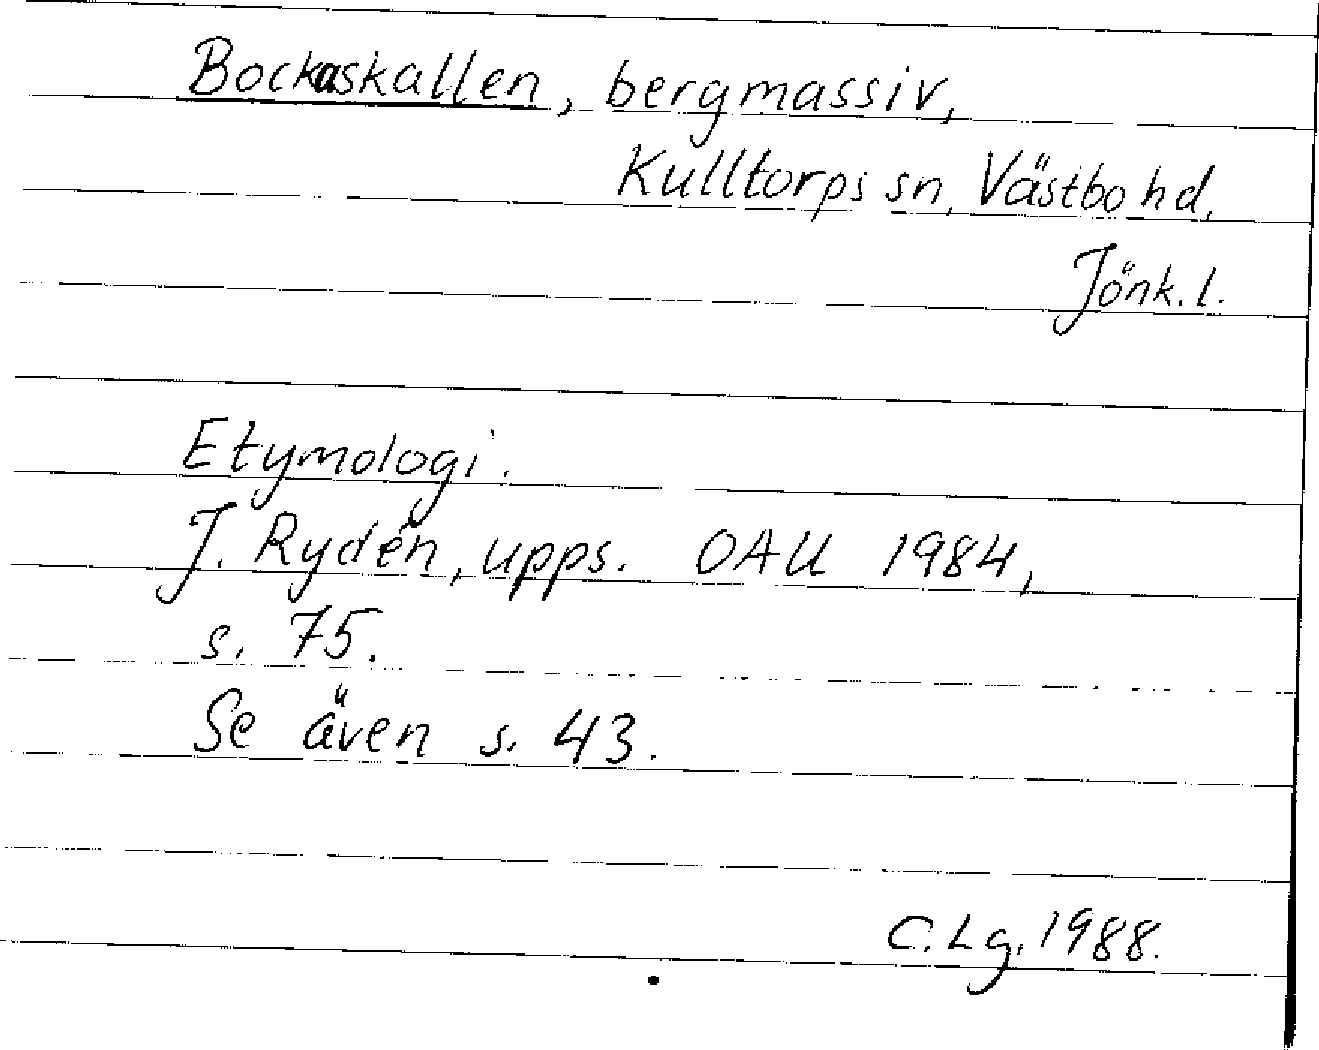 Bockaskallen, bergmassiv,
Kulltorps sn, Västbo hd,
Jönk. l.
Etymologi.
J. Rydén, upps. OAU 1984,
s. 75.
Se även s. 43.
C. Lg. 1988.